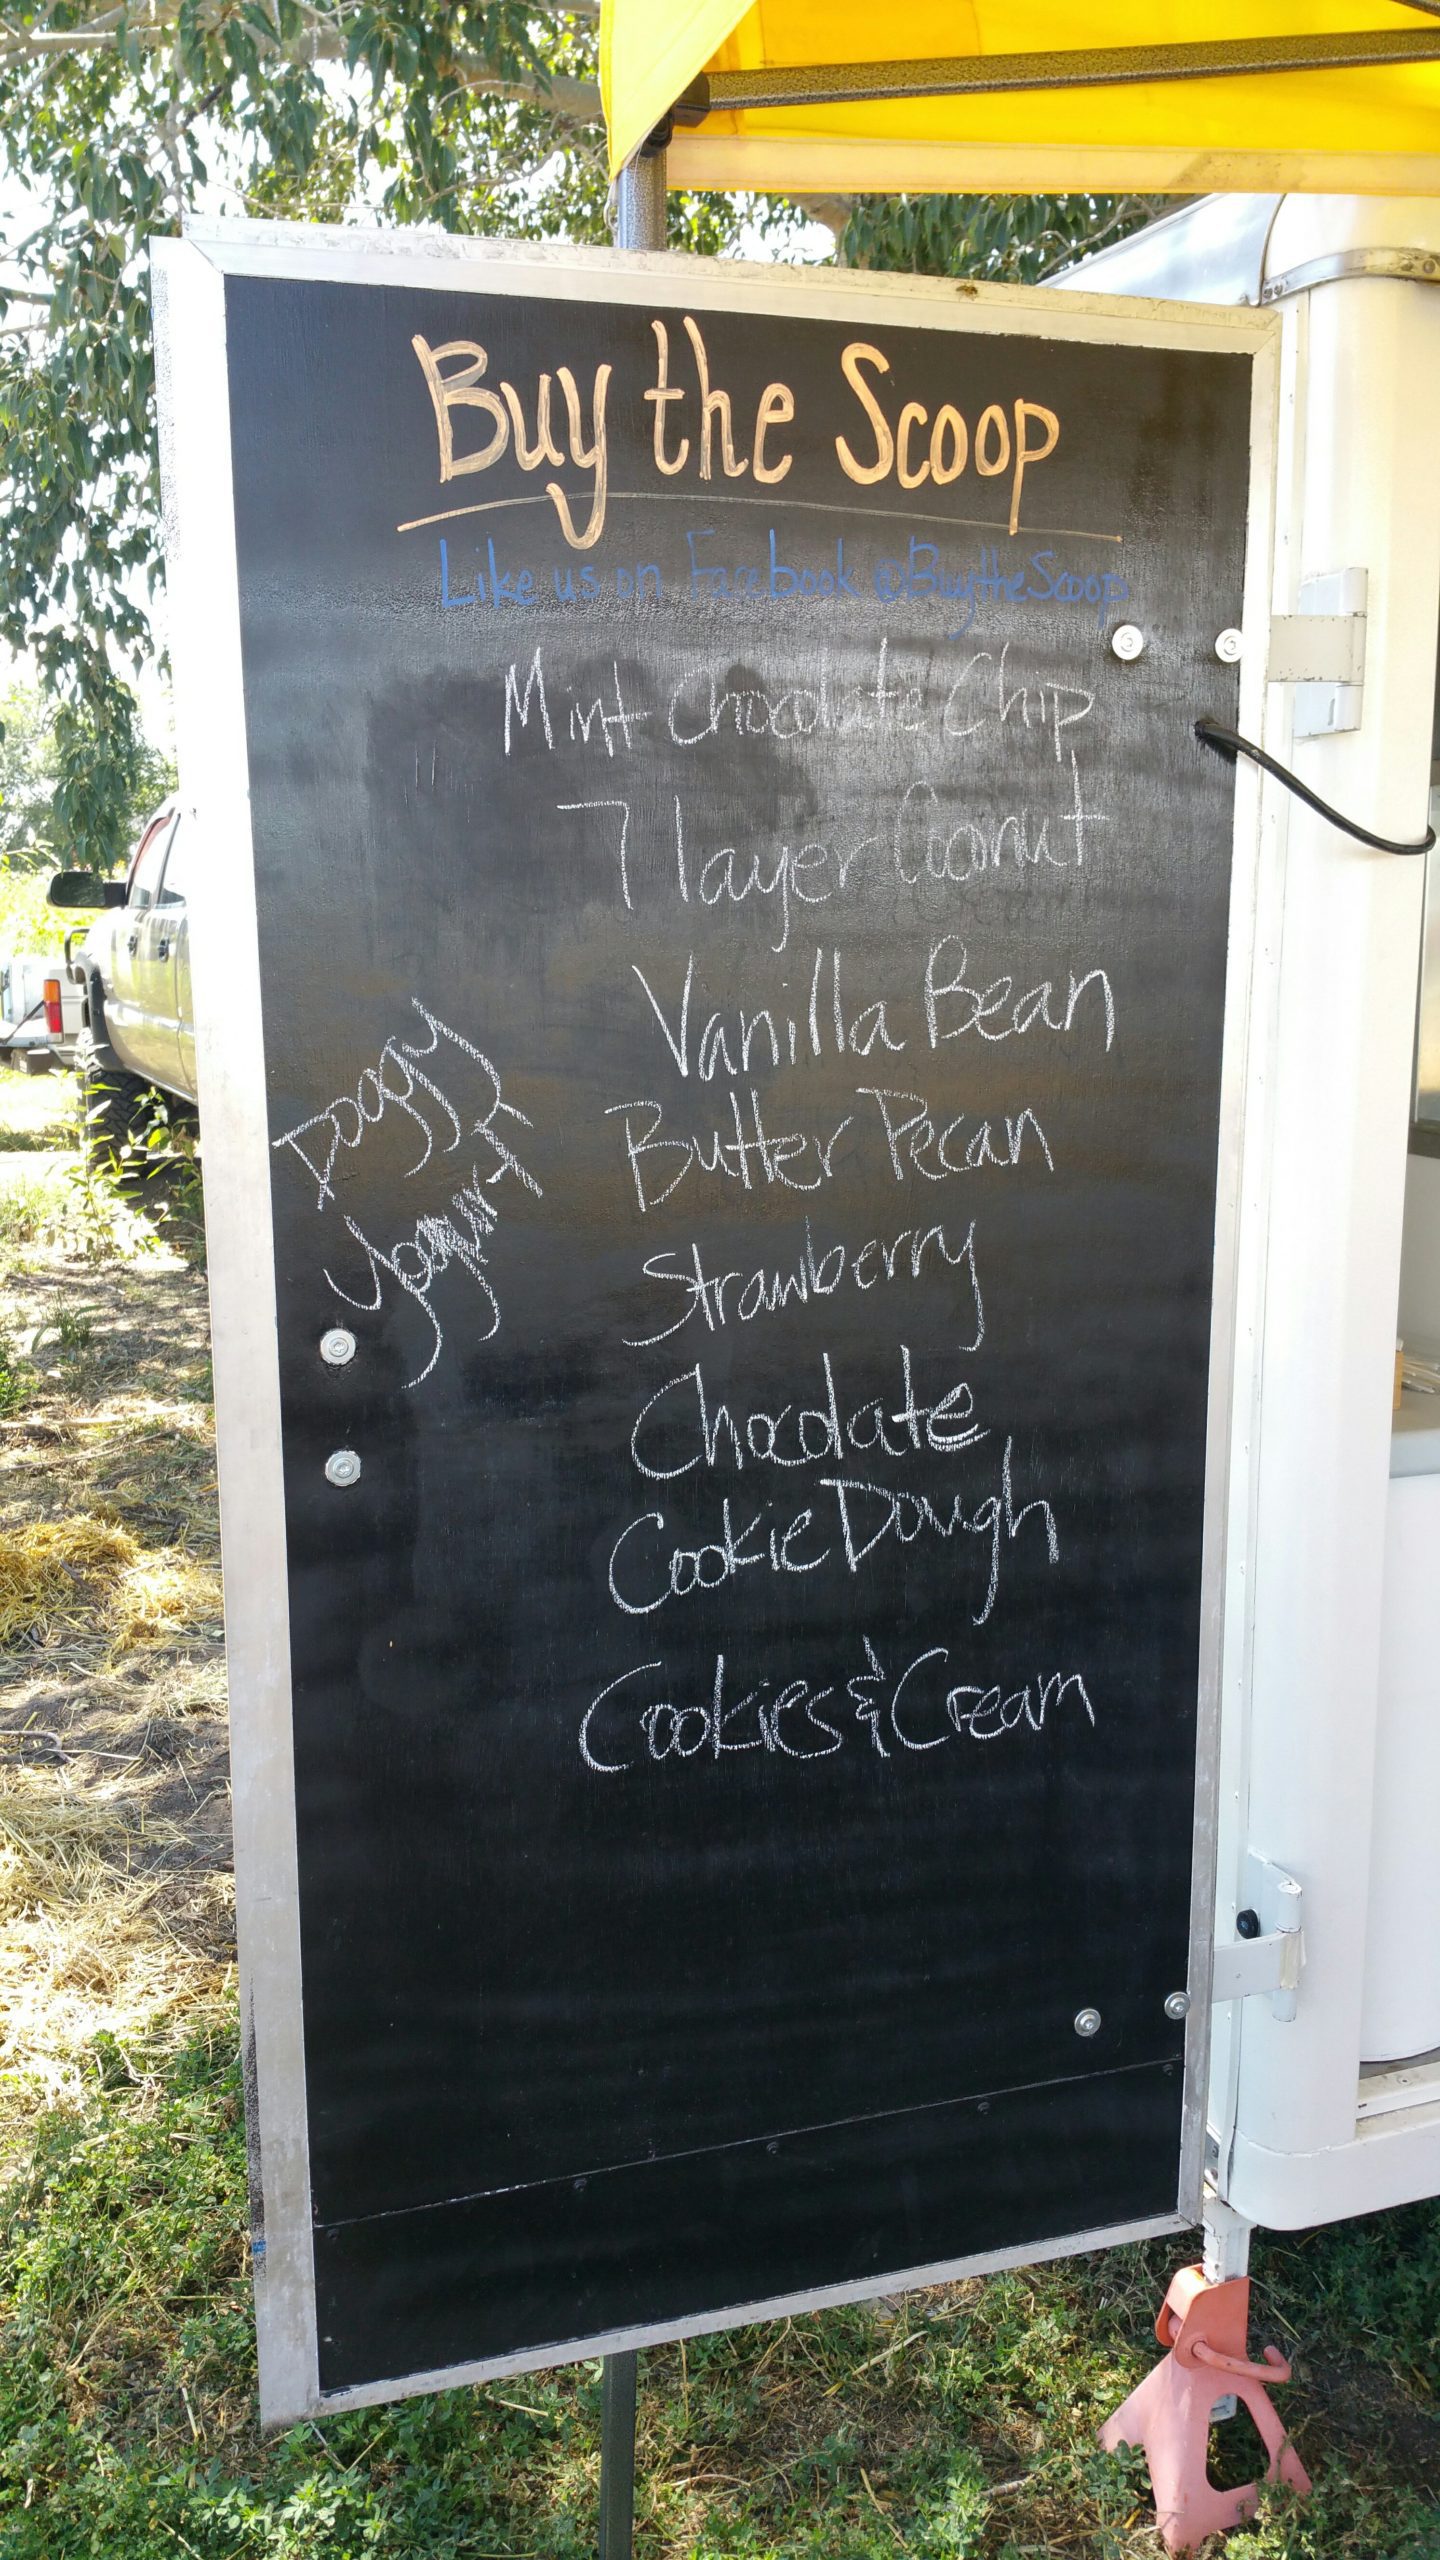 Buy the Scoop
Like us on Facebook @BuytheScoop
Mint Chocolate Chip
7 layer Coconut
Vanilla Bean
Butter Pecan
Strawberry
Chocolate
Cookie Dough
Cookies & Cream
Doggy
Yogurt